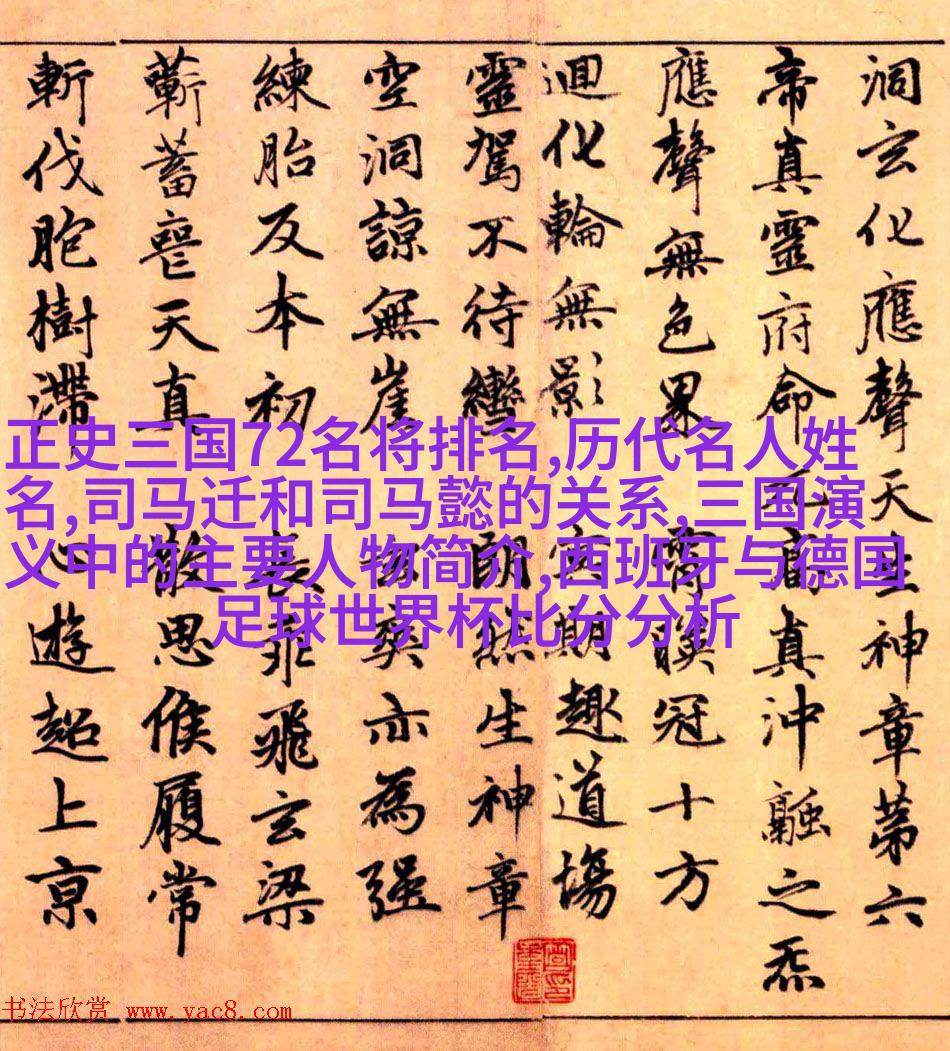 洞玄化應聲天生神章苐六
帝真靈府命高真沖融之炁
應聲無色界霄暎冠十方
迴化輪無影冥期趣道場
靈駕不待轡朗然生神章
空洞諒無崖奕亦為強
練胎反本初長乖飛玄梁
蘄蓄喪天真散思候履常
斬伐胞樹滯心遊超上京
正史三国72名将排名,历代名人姓
名,司马迁和司马懿的关系,三国演
义中的主要人物简介,西班牙与德国
足球世界杯比分分析
书法欣赏 www.yac8.com